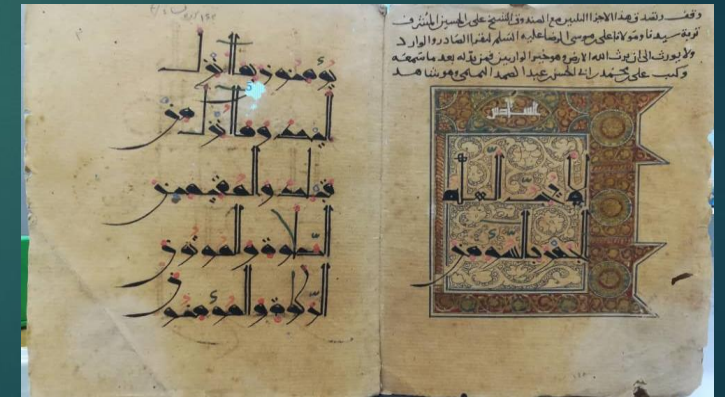 وقف وتصدق هذا الاجزا الثلثين مع الصندوق الشيخ علي الحسين المشرف
تربة سيدنا ومولانا علي موسى الرضا عليه السلم الصادر والوارد
ولا يورث الى ان يرث الله الارض وهو خير الوارثين فمن بدله بعد ما سمعه
وكتب علي محمد عبد الصمد وهو شاهد
لا يحب الله
الجهر بالسوء من
يؤمنون بما أنزل
إليك وما أنزل من
قبلك والمقيمين
الصلوة والمؤتون
الزكوة والمؤمنون